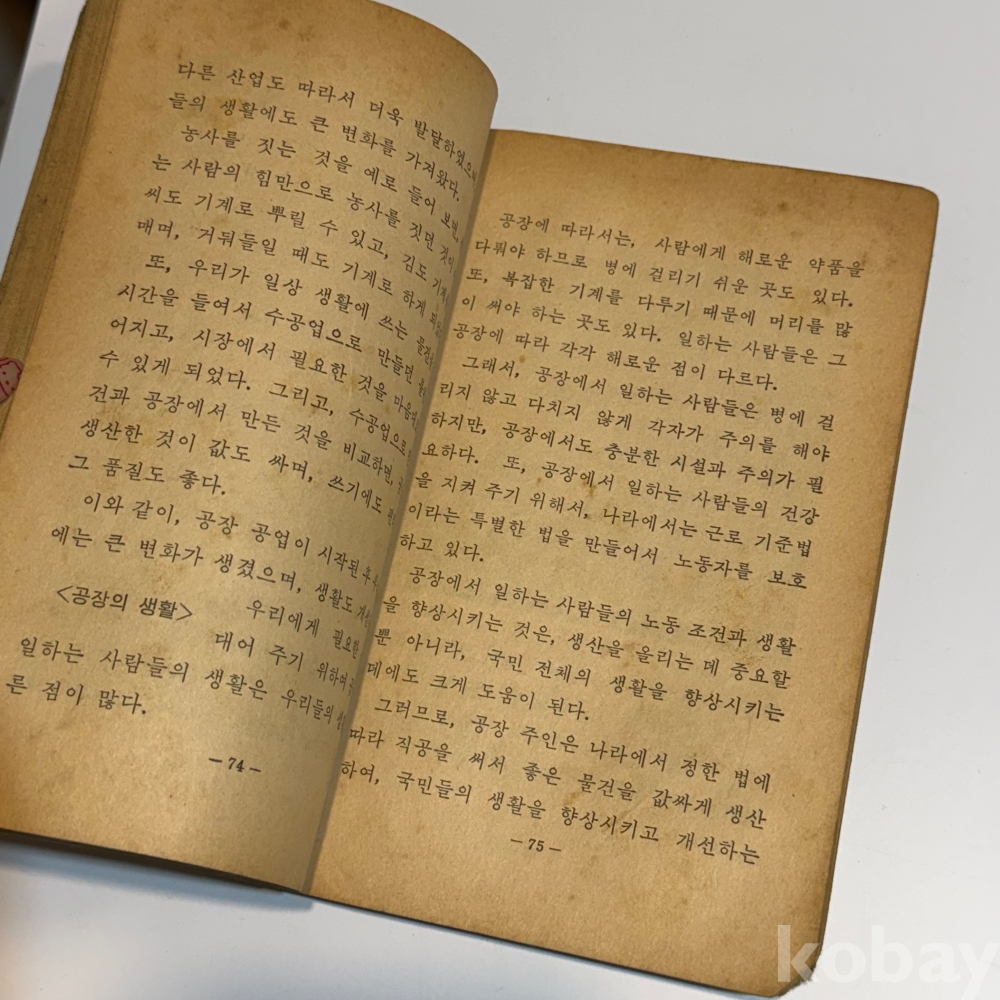 다른 산업도 따라서 더욱 발달하였으니
들의 생활에도 큰 변화를 가져왔다.
농사를 짓는 것을 예로 들어 보면,
는 사람의 힘만으로 농사를 짓던 것이
씨도 기계로 뿌릴 수 있고, 김도
매며, 거둬들일 때도 기계로 하게
또, 우리가 일상 생활에 쓰는
시간을 들여서 수공업으로 만들던
어지고, 시장에서 필요한 것을
수 있게 되었다. 그리고, 수공업으로
건과 공장에서 만든 것을 비교하면,
생산한 것이 값도 싸며, 쓰기에도
그 품질도 좋다.
이와 같이, 공장 공업이 시작된 후
에는 큰 변화가 생겼으며, 생활도
<공장의 생활> 우리에게 필요한
대어 주기 위하여
일하는 사람들의 생활은 우리들의
른 점이 많다.
— 74 —
공장에 따라서는, 사람에게 해로운 약품을
다뤄야 하므로 병에 걸리기 쉬운 곳도 있다.
또, 복잡한 기계를 다루기 때문에 머리를 많
이 써야 하는 곳도 있다. 일하는 사람들은 그
공장에 따라 각각 해로운 점이 다르다.
그래서, 공장에서 일하는 사람들은 병에 걸
리지 않고 다치지 않게 각자가 주의를 해야
하지만, 공장에서도 충분한 시설과 주의가 필
요하다. 또, 공장에서 일하는 사람들의 건강
을 지켜 주기 위해서, 나라에서는 근로 기준법
이라는 특별한 법을 만들어서 노동자를 보호
하고 있다.
공장에서 일하는 사람들의 노동 조건과 생활
을 향상시키는 것은, 생산을 올리는 데 중요할
뿐 아니라, 국민 전체의 생활을 향상시키는
데에도 크게 도움이 된다.
그러므로, 공장 주인은 나라에서 정한 법에
따라 직공을 써서 좋은 물건을 값싸게 생산
하여, 국민들의 생활을 향상시키고 개선하는
— 75 —
kobay